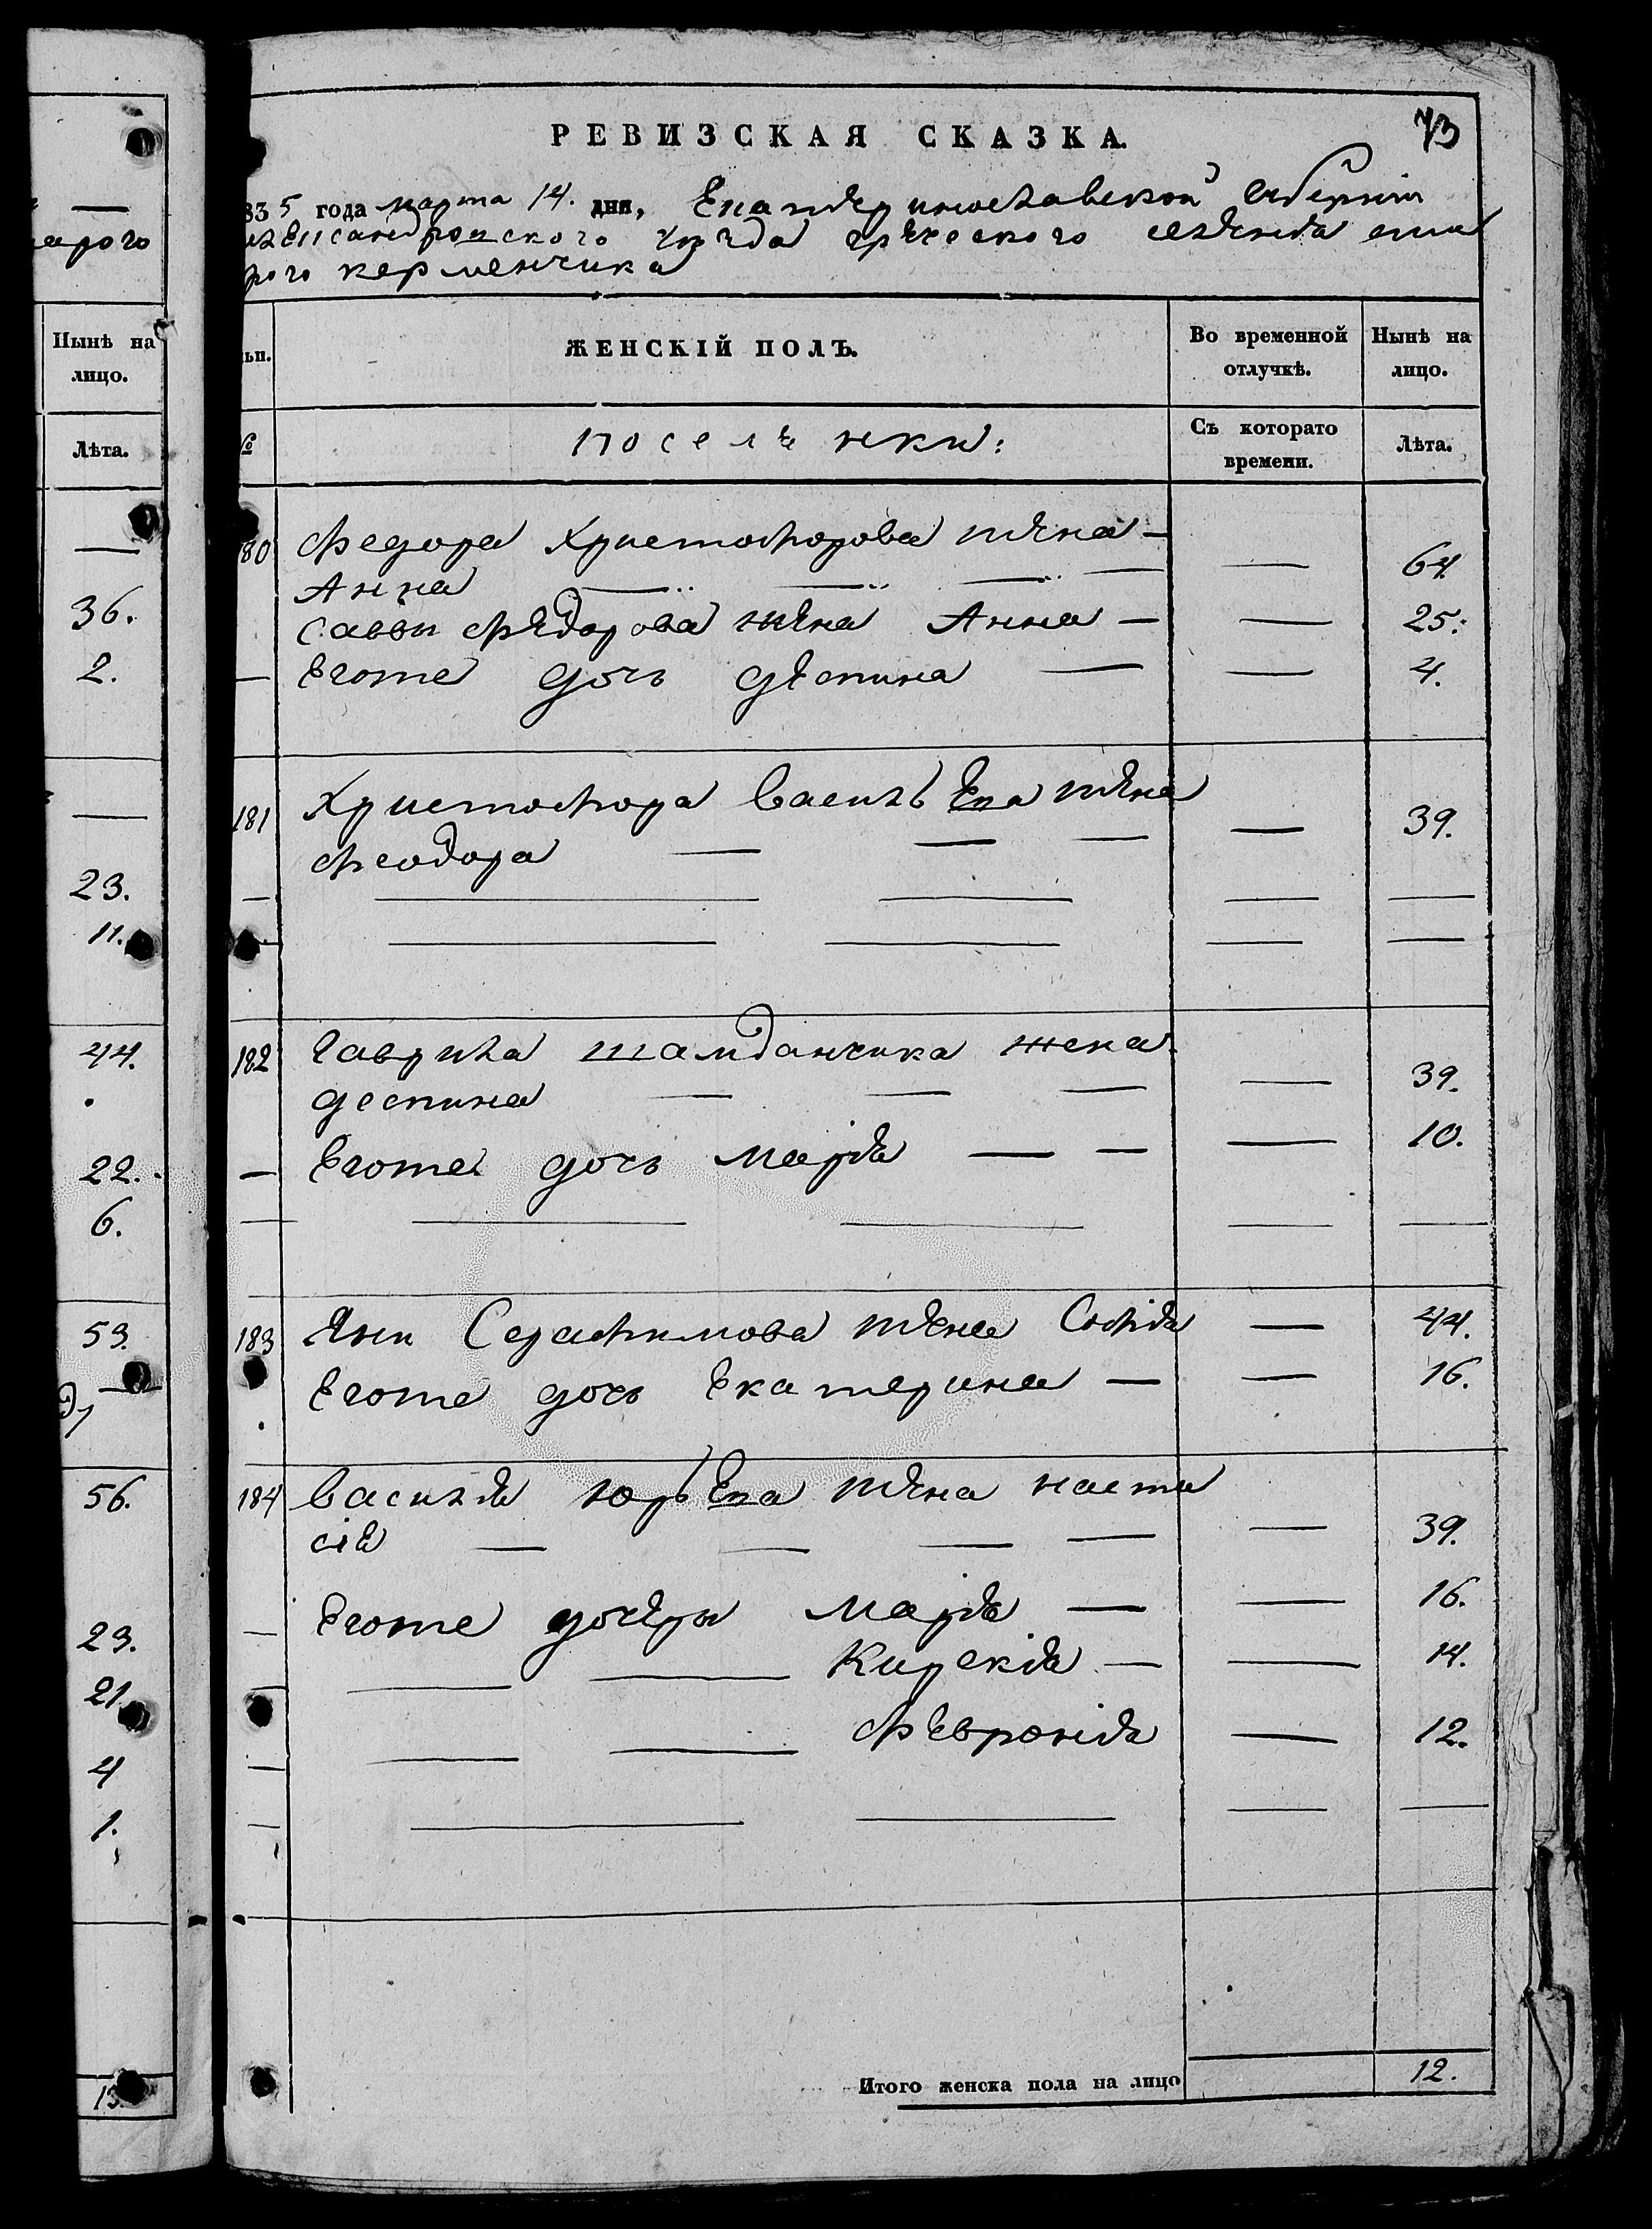 арого
Нынѣ на
лицо.
Лѣта.
36.
2.
23.
11.
44.
22.
6.
53.
56.
23.
21.
4
1.
73
РЕВИЗСКАЯ СКАЗКА.
835 года марта 14. дня, Екатеринославской губерніи
александровского уѣзда греческого селенія ста
рого керменчика
ЖЕНСКІЙ ПОЛЪ.
Во временной отлучкѣ.
Нынѣ на лицо.
№
поселѣнки:
Съ котораго времени.
Лѣта.
80 Федора Христофорова жена —
Анна — — — — — 64.
Саввы Федорова жена Анна — — 25.
— Егоже дочь деспина — — 4.
181 Христофора Васильева жена — 39.
Феодора — — —
— — — — —
— — — —
182 Гаврила шамданчика жена
деспина — — — — 39.
— Егоже дочь Марія — — — 10.
— — — — —
183 Яни Серафимова жена Софія — 44.
Егоже дочь Екатерина — — 16.
184 Василія юрьева жена наста
сія — — — — — 39.
— Егоже дочери Марія — — 16.
— — — Кирекія — — 14.
— — — Февронія — 12.
— — — — —
Итого женска пола на лицо 12.